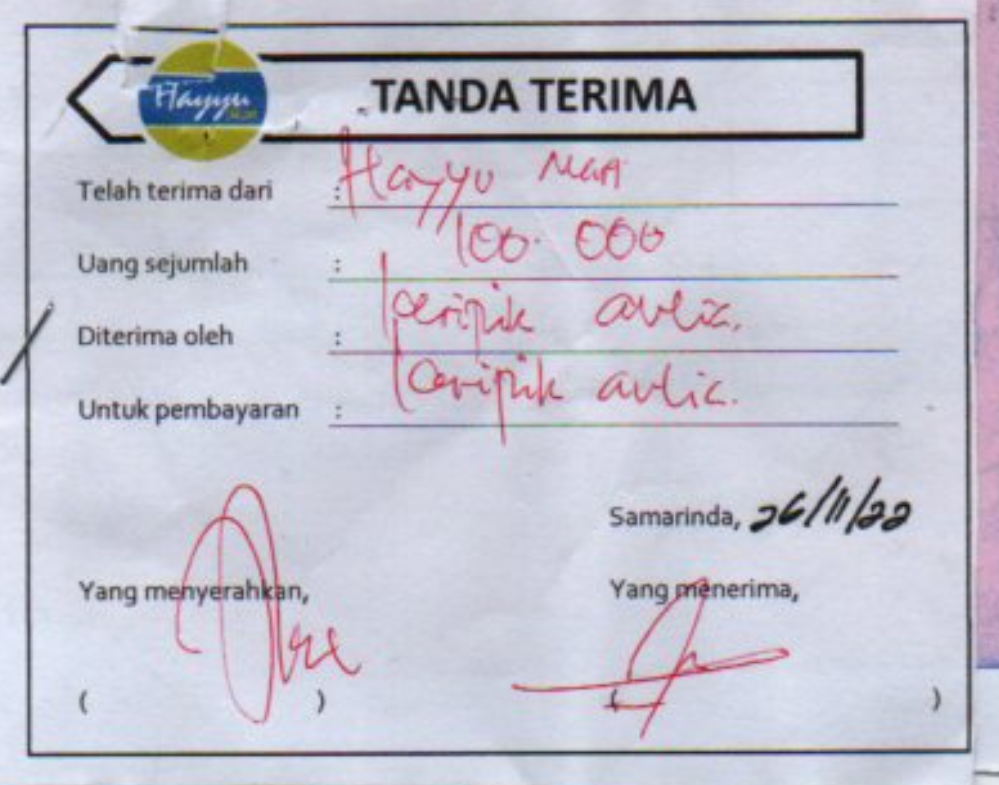 Hayyu
TANDA TERIMA
Telah terima dari : Hayyu Mart
Uang sejumlah : 100.000
Diterima oleh : keripik aulia.
Untuk pembayaran : keripik aulia.
Samarinda, 26/11/22
Yang menyerahkan, Yang menerima,
( ) ( )